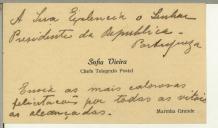 A Sua Excelencia o Senhor
Presidente da Republica
Portugueza
Sofia Vieira
Chefe Telegrafo Postal
Envia as mais calorosas
felicitações por todas as vitori
as alcançadas.
Marinha Grande